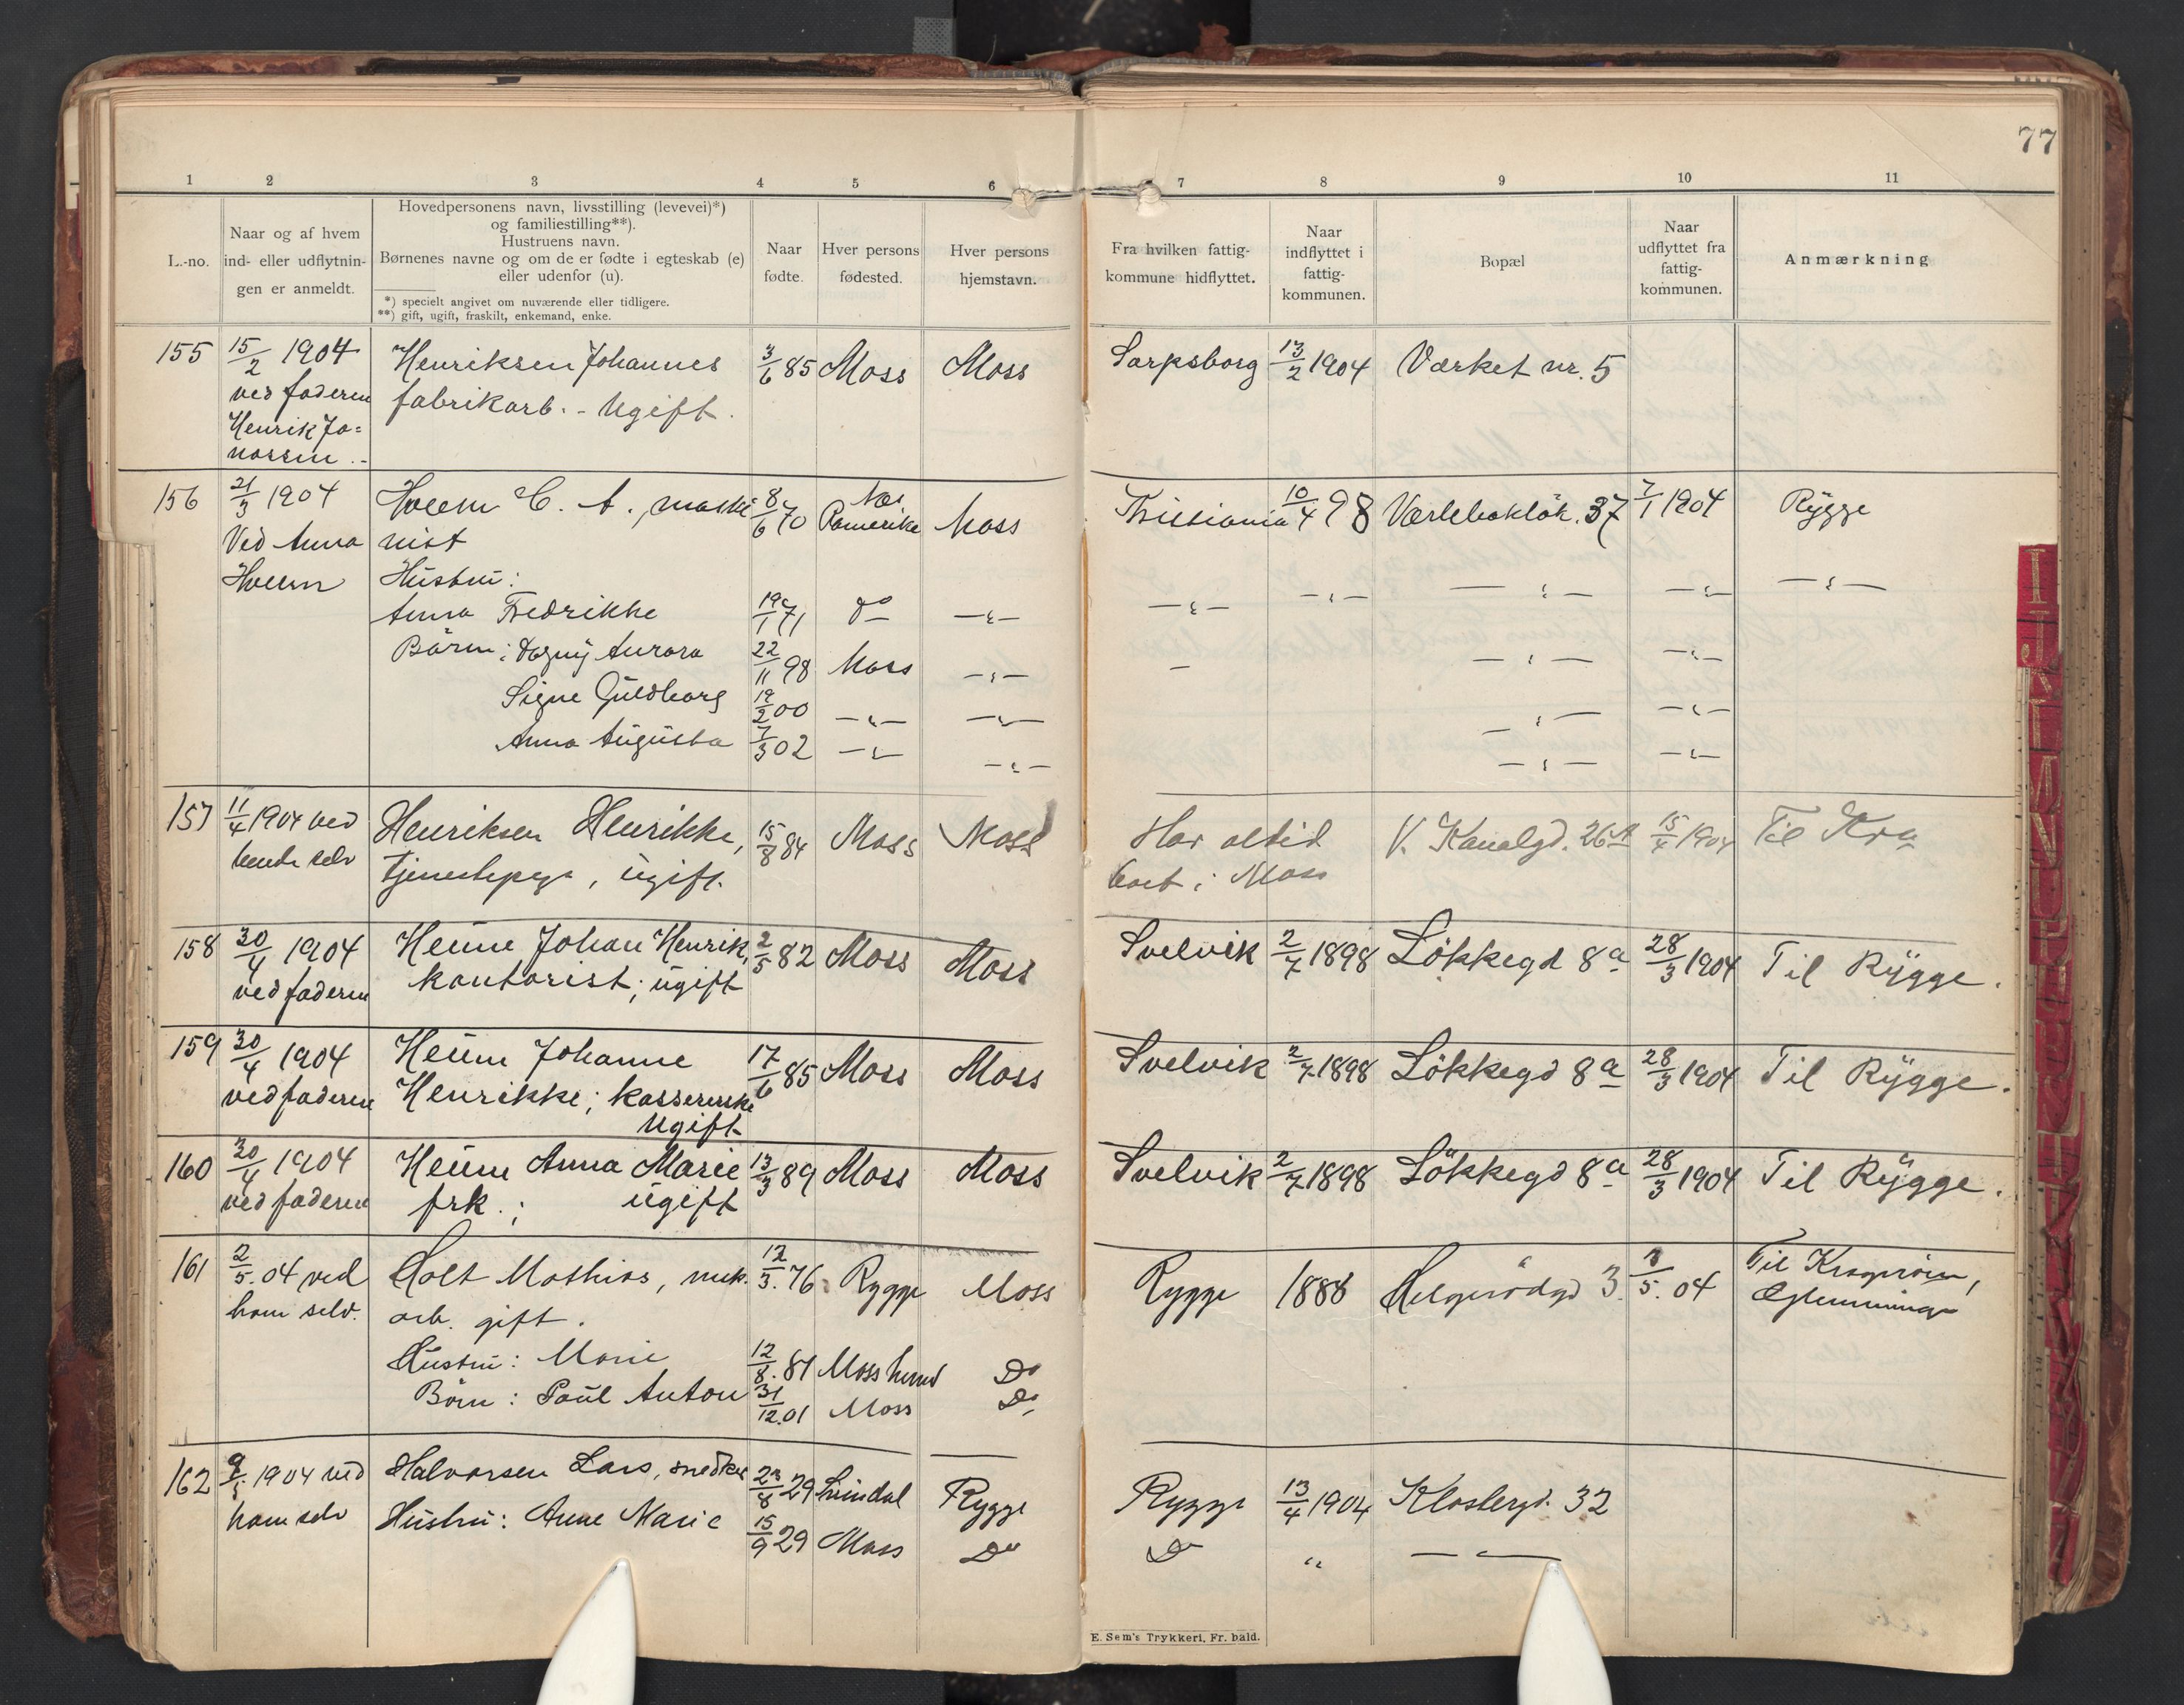 77
1 2 3 4 5 6 7 8 9 10 11
L.-no.
Naar og af hvem
ind- eller udflytnin-
gen er anmeldt.
Hovedpersonens navn, livsstilling (levevei)*)
og familiestilling**).
Hustruens navn.
Børnenes navne og om de er fødte i egteskab (e)
eller udenfor (u).
*) specielt angivet om nuværende eller tidligere.
**) gift, ugift, fraskilt, enkemand, enke.
Naar
fødte.
Hver persons
fødested.
Hver persons
hjemstavn.
Fra hvilken fattig-
kommune hidflyttet.
Naar
indflyttet i
fattig-
kommunen.
Bopæl
Naar
udflyttet fra
fattig-
kommunen.
Anmærkning
155 15/2 1904 Henriksen Johannes 3/6 85 Moss Moss Sarpsborg 13/2 1904 Værket nr. 5
ved faderen fabrikarb. - Ugift.
Henrik Jo=
nassen.-
156 21/3 1904 Hveem C. A., maski 8/6 70 Romerike Moss Kristiania 10/4 98 37 7/1 1904 Rygge
Ved Anna nist
Hveem Hustru:
Anna Fredrikke 19/1 71 do -"- -"- -"- -"- -"- -"-
Børn: Dagny Aurora 22/11 98 Moss -"- - -"- -"-
Signe Guldborg 19/2 00 -"- -"- -"- -"-
Anna Augusta 7/3 02 -"- -"- -"- -"-
157 11/4 1904 ved Henriksen Henrikke, 15/8 84 Moss Moss Har altid V. Kanalgd. 26A 15/4 1904 Til Kra
hende selv Tjenestepige, ugift. boet i Moss
158 30/4 1904 Heum Johan Henrik, 2/5 82 Moss Moss Svelvik 2/7 1898 Løkkegd 8a 28/3 1904 Til Rygge.
ved faderen kontorist; ugift
159 30/4 1904 Heum Johanne 17/6 85 Moss Moss Svelvik 2/7 1898 Løkkegd 8a 28/3 1904 Til Rygge.
ved faderen Henrikke; kassererske
Ugift
160 30/4 1904 Heum Anna Marie 13/3 89 Moss Moss Svelvik 2/7 1898 Løkkegd 8a 28/3 1904 Til Rygge.
ved faderen frk.; ugift
161 2/5. 04 ved Holt Mathias, mek. 12/3. 76 Rygge Moss Rygge 1888 Helgerødgd 3. /5. 04 Til
ham selv. arb. gift. Glemminge
Hustru: Marie 12/8. 81 Moss Do
Børn: Paul Anton 31/12.01 Moss Do
162 9/5 1904 ved Halvorsen Lars, snedker 23/8 29 Svindal Rygge Rygge 13/4 1904 Klostergd. 32
ham selv Hustru: Anne Marie 15/9 29 Moss Do Do " -"-
E. Sem's Trykkeri, Fr. hald.